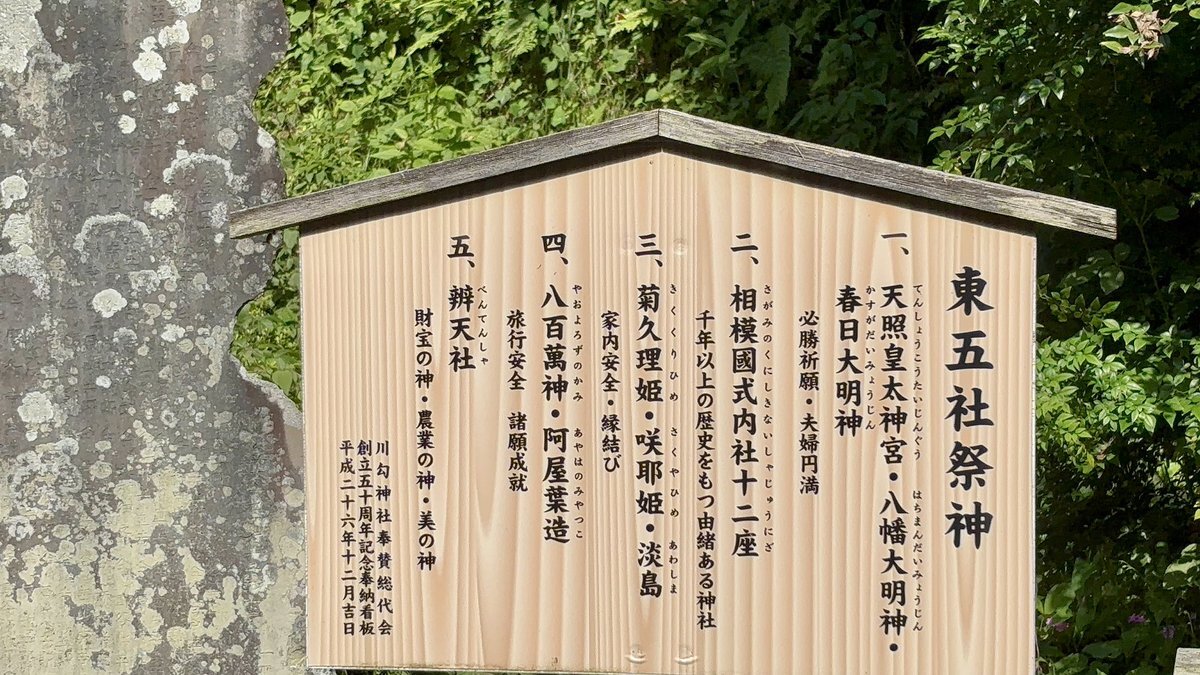 東五社祭神
てんしょうこうたいじんぐう はちまんだいみょうじん
一、天照皇太神宮・八幡大明神・
かすがだいみょうじん
春日大明神
必勝祈願・夫婦円満
さがみのくにしきないしゃじゅうにざ
二、相模國式内社十二座
千年以上の歴史をもつ由緒ある神社
きくくりひめ さくやひめ あわしま
三、菊久理姫・咲耶姫・淡島
家内安全・縁結び
やおよろずのかみ あやはのみやつこ
四、八百萬神・阿屋葉造
旅行安全 諸願成就
べんてんしゃ
五、辨天社
財宝の神・農業の神・美の神
川勾神社奉賛総代会
創立五十周年記念奉納看板
平成二十六年十二月吉日